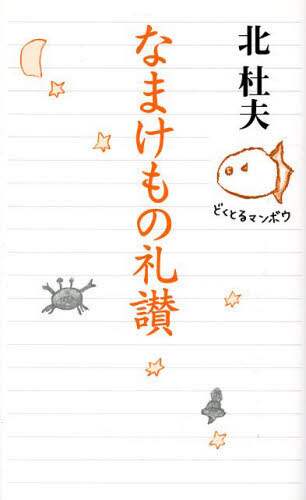 北杜夫
なまけもの礼讃
どくとるマンボウ